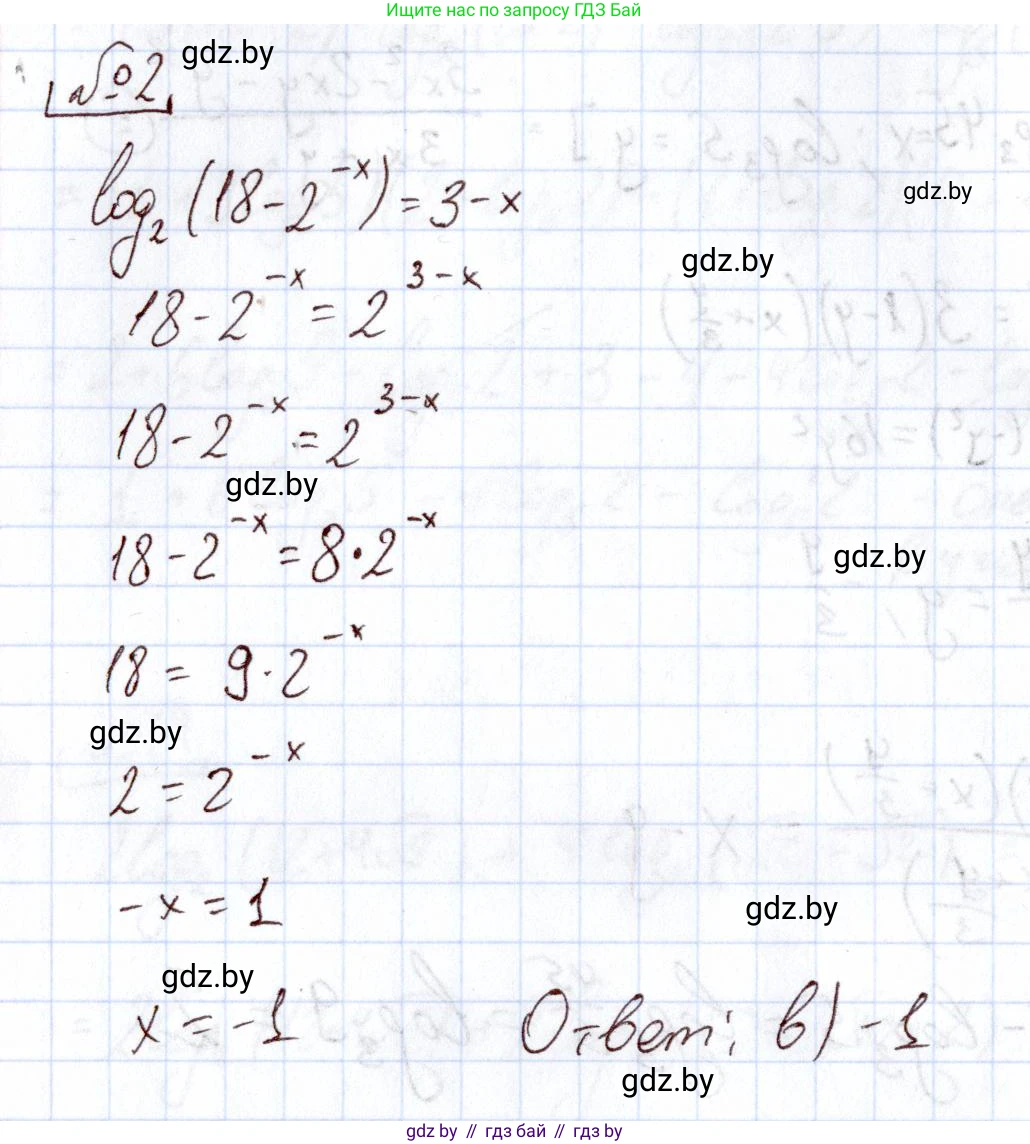 Ищите нас по запросу ГДЗ Бай
№2
gdz.by
log₂(18-2^(-x)) = 3-x
gdz.by
gdz.by
18-2^(-x) = 2^(3-x)
18-2^(-x) = 2^(3-x)
gdz.by
18-2^(-x) = 8·2^(-x)
gdz.by
18 = 9·2^(-x)
gdz.by
2 = 2^(-x)
-x = 1
gdz.by
gdz.by
x = -1
Ответ: в) -1
gdz.by
gdz.by // гдз бай // gdz.by